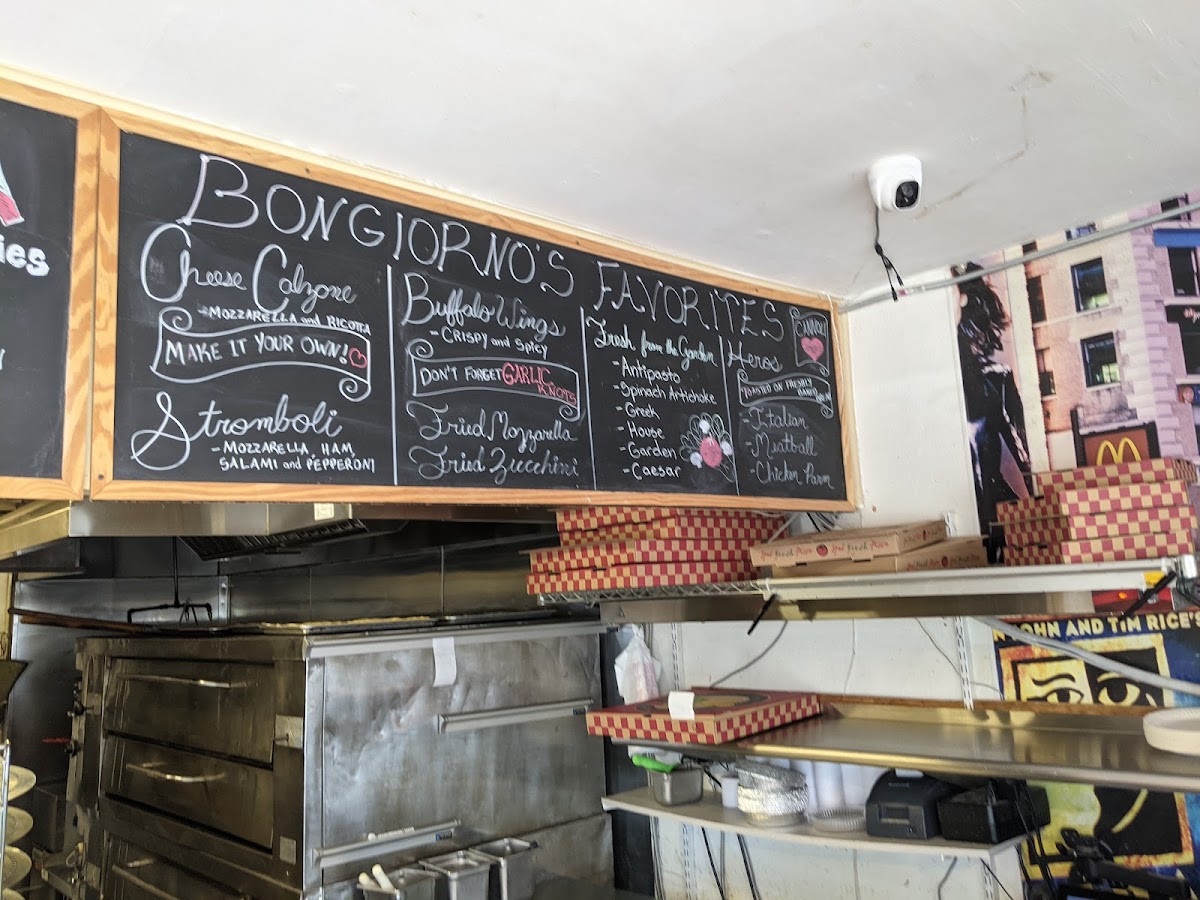 ies
BONGIORNO'S FAVORITES
Cheese Calzone
-MOZZARELLA and RICOTTA
MAKE IT YOUR OWN!
Stromboli
-MOZZARELLA, HAM,
SALAMI and PEPPERONI
Buffalo Wings
-CRISPY and SPICY
DON'T FORGET GARLIC
KNOTS
Fried Mozzarella
Fried Zucchini
Fresh from the Garden
-Antipasto
-Spinach Artichoke
-Greek
-House
-Garden
-Caesar
CANNOLI
Heros
TOASTED ON FRESHLY
-Italian
-Meatball
-Chicken Parm
AND TIM RICE'S